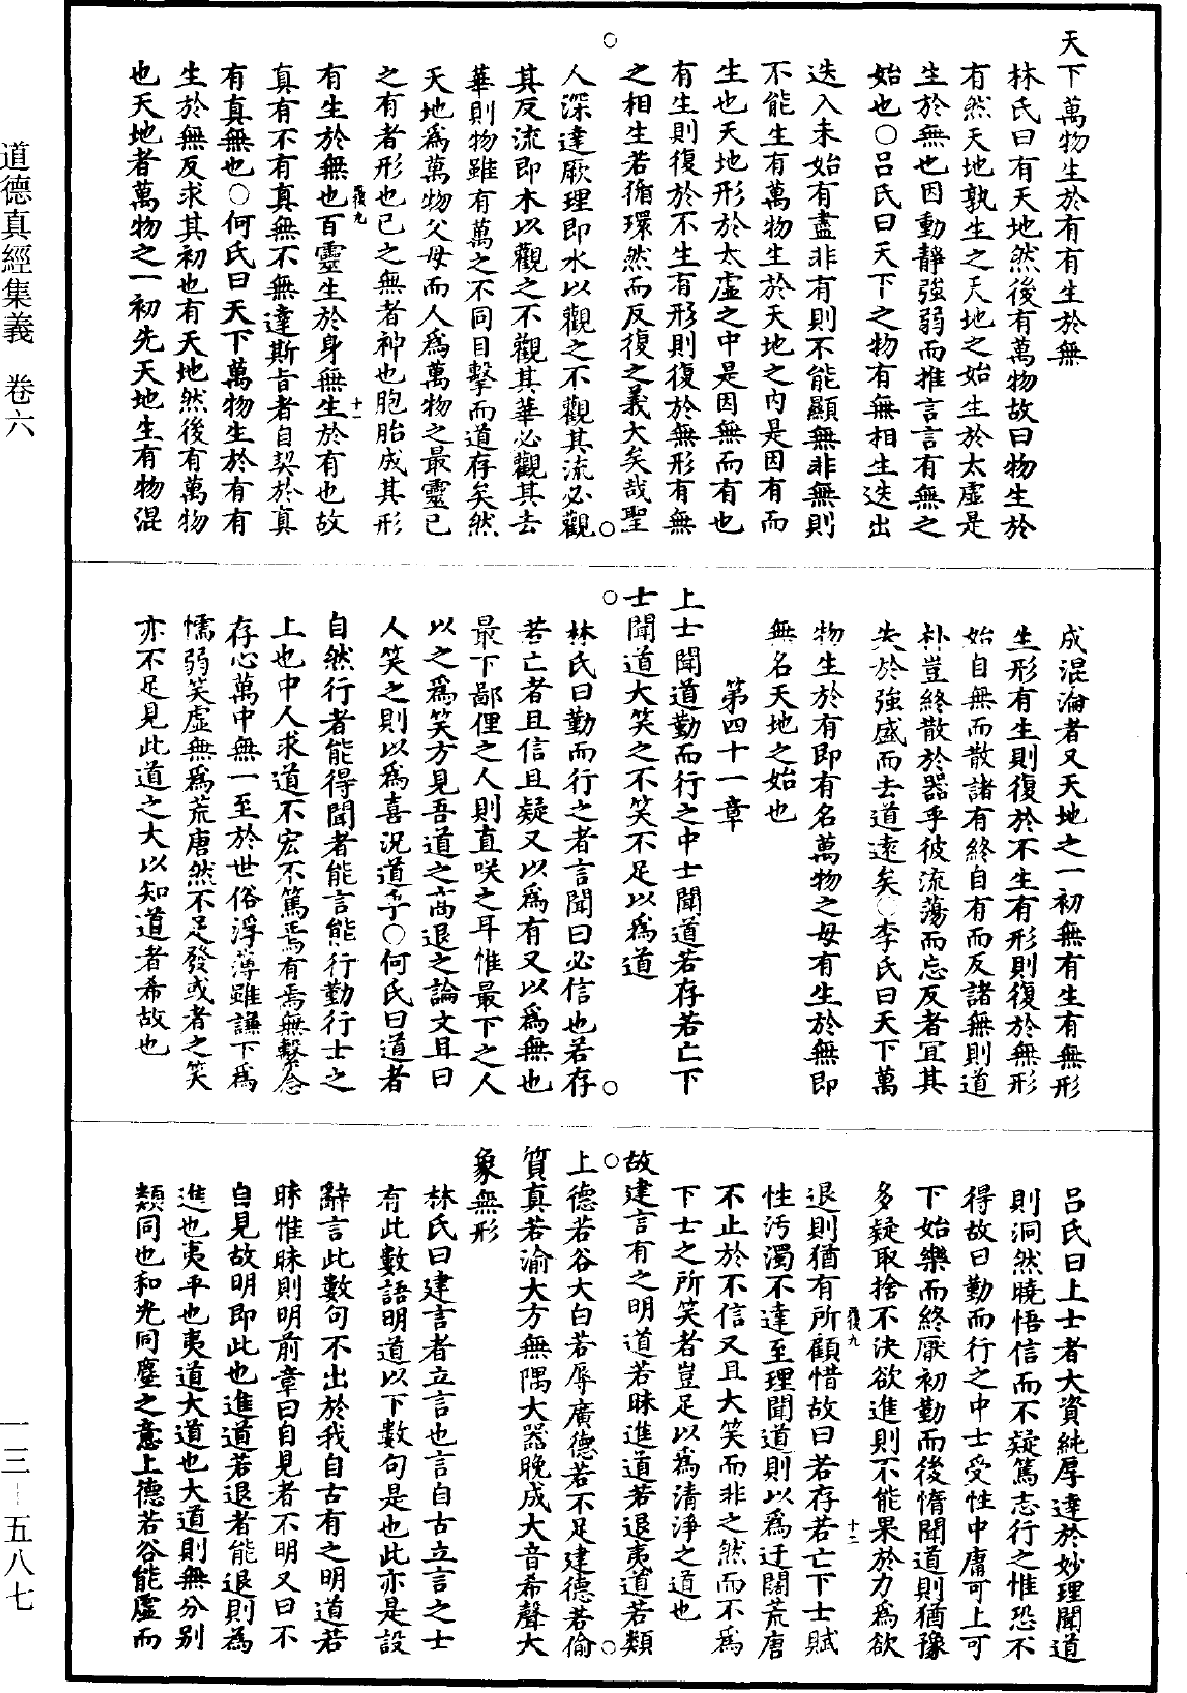 天下萬物生於有有生於無
林氏曰有天地然後有萬物故曰物生於
有然天地孰生之天地之始生於太虛是
生於無也因動靜強弱而推言言有無之
始也○呂氏曰天下之物有無相生迭出
迭入未始有盡非有則不能顯無非無則
不能生有萬物生於天地之內是因有而
生也天地形於太虛之中是因無而有也
有生則復於不生有形則復於無形有無
之相生若循環然而反復之義大矣哉聖
人深達厥理即水以觀之不觀其流必觀
其反流即木以觀之不觀其華必觀其去
華則物雖有萬之不同目擊而道存矣然
天地為萬物父母而人為萬物之最靈已
之有者形也已之無者神也胞胎成其形
復九
十一
有生於無也百靈生於身無生於有也故
真有不有真無不無達斯旨者自契於真
有真無也○何氏曰天下萬物生於有有
生於無反求其初也有天地然後有萬物
也天地者萬物之一初先天地生有物混
成混淪者又天地之一初無有生有無形
生形有生則復於不生有形則復於無形
始自無而散諸有終自有而反諸無則道
朴豈終散於器乎彼流蕩而忘反者宜其
失於強盛而去道遠矣○李氏曰天下萬
物生於有即有名萬物之母有生於無即
無名天地之始也
第四十一章
上士聞道勤而行之中士聞道若存若亡下
士聞道大笑之不笑不足以為道
林氏曰勤而行之者言聞曰必信也若存
若亡者且信且疑又以為有又以為無也
最下鄙俚之人則直咲之耳惟最下之人
以之為笑方見吾道之高退之論文且曰
人笑之則以為喜況道乎○何氏曰道者
自然行者能得聞者能言能行勤行士之
上也中人求道不宏不篤焉有焉無繫念
存心萬中無一至於世俗浮薄雖謙下為
懦弱笑虛無為荒唐然不足發或者之笑
亦不足見此道之大以知道者希故也
呂氏曰上士者大資純厚達於妙理聞道
則洞然曉悟信而不疑篤志行之惟恐不
得故曰勤而行之中士受性中庸可上可
下始樂而終厭初勤而後惰聞道則猶豫
多疑取捨不決欲進則不能果於力為欲
復九
十二
退則猶有所顧惜故曰若存若亡下士賦
性污濁不達至理聞道則以為迂闊荒唐
不止於不信又且大笑而非之然而不為
下士之所笑者豈足以為清淨之道也
故建言有之明道若昧進道若退夷道若類
上德若谷大白若辱廣德若不足建德若偷
質真若渝大方無隅大器晚成大音希聲大
象無形
林氏曰建言者立言也言自古立言之士
有此數語明道以下數句是也此亦是設
辭言此數句不出於我自古有之明道若
昧惟昧則明前章曰自見者不明又曰不
自見故明即此也進道若退者能退則為
進也夷平也夷道大道也大道則無分別
類同也和光同塵之意上德若谷能虛而
道德真經集義　卷六
一三－五八七